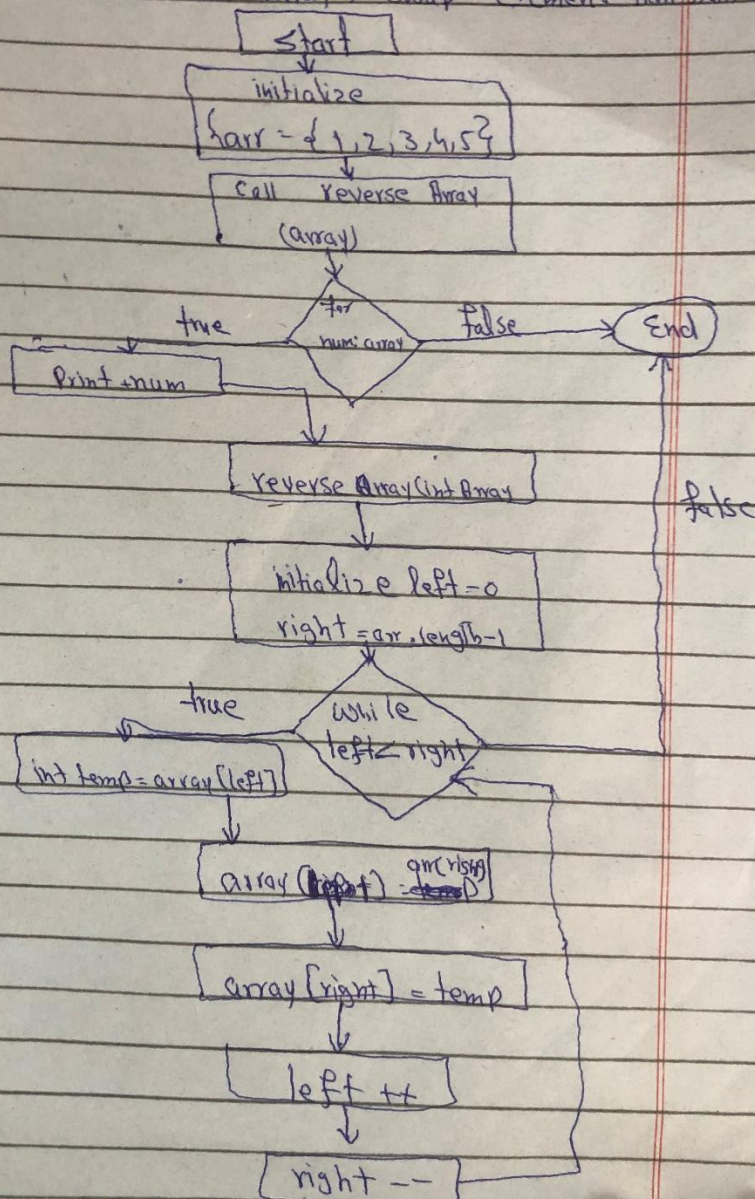 Start
initialize
{arr = {1,2,3,4,5}
Call reverse Array
(array)
for
num: array
true
false
End
Print num
reverse Array(int Array
initialize left=0
right =arr.length-1
false
true
while
left< right
int temp=array[left]
arr(right)
array =
array [right] = temp
left ++
right --